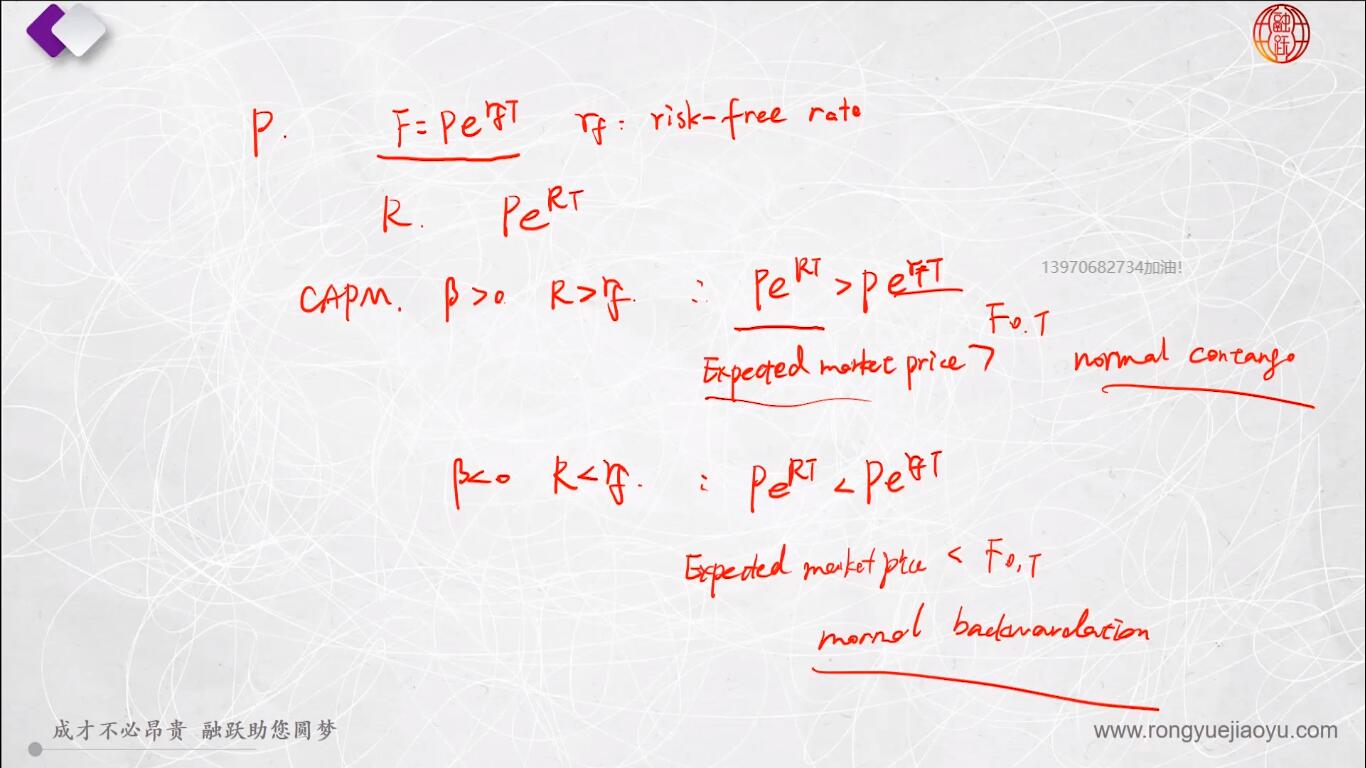 融跃
P. F = Pe^{r_f T} r_f : risk-free rate
R. Pe^{RT}
13970682734加油!
CAPM. β>0 R>r_f. ∴ Pe^{RT} > Pe^{r_f T}
Expected market price > F_{0,T} normal contango
β<0 R<r_f. ∴ Pe^{RT} < Pe^{r_f T}
Expected market price < F_{0,T}
normal backwardation
成才不必昂贵 融跃助您圆梦
www.rongyuejiaoyu.com